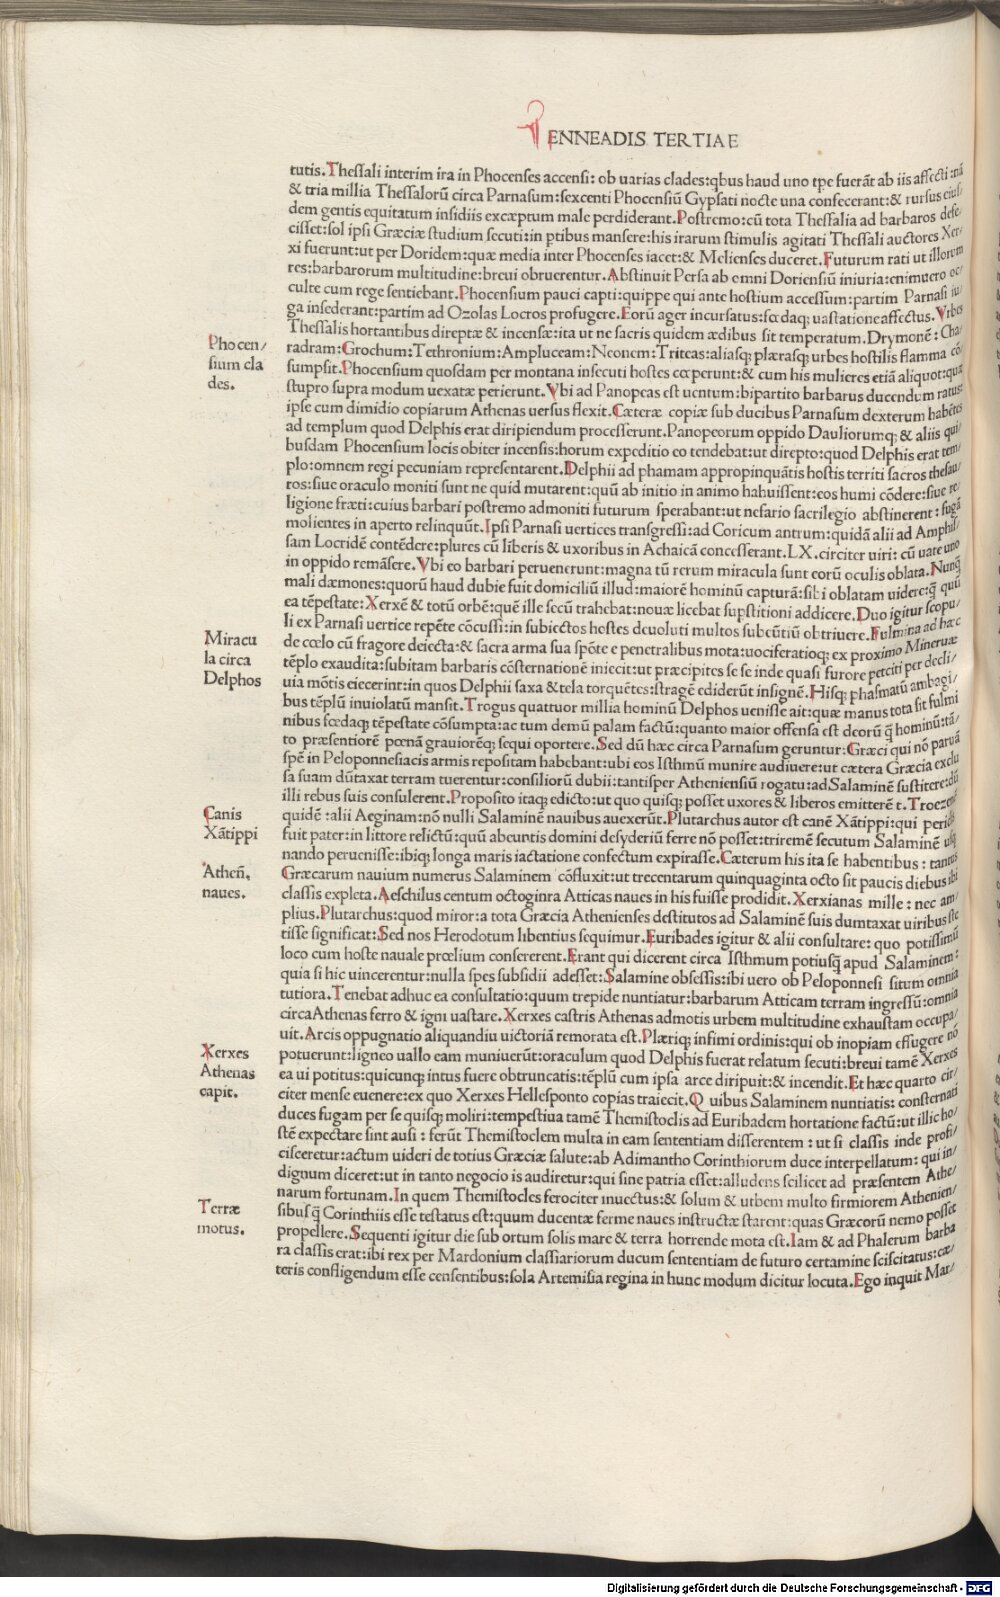 ENNEADIS TERTIAE
tutis.Thessali interim ira in Phocenses accensi: ob uarias clades:qbus haud uno tpe fuerāt ab iis affecti:nā
& tria millia Thessalorū circa Parnasum:sexcenti Phocensiū Gypsati nocte una confecerant:& rursus eius/
dem gentis equitatum insidiis excæptum male perdiderant.Postremo:cū tota Thessalia ad barbaros defe/
cisset:sol ipsi Græciæ studium secuti:in ptibus mansere:his irarum stimulis agitati Thessali auctores Xer/
xi fuerunt:ut per Doridem:quæ media inter Phocenses iacet:& Melienses duceret.Futurum rati ut illorum
res:barbarorum multitudine:breui obruerentur.Abstinuit Persa ab omni Doriensiū iniuria:enimuero oc/
culte cum rege sentiebant.Phocensium pauci capti:quippe qui ante hostium accessum:partim Parnasi iu/
ga insederant:partim ad Ozolas Locros profugere.Eorū ager incursatus:fœdaq; uastatione affectus.Vrbes
Thessalis hortantibus direptæ & incensæ:ita ut ne sacris quidem ædibus sit temperatum.Drymonē: Cha/
radram:Grochum:Tethronium:Ampluceam:Neonem:Triteas:aliasq; plærasq; urbes hostilis flamma cō/
Phocen/
sium cla
des.
sumpsit.Phocensium quosdam per montana insecuti hostes cœperunt:& cum his mulieres etiā aliquot:quæ
stupro supra modum uexatæ perierunt.Vbi ad Panopeas est uentum:bipartito barbarus ducendum ratus:
ipse cum dimidio copiarum Athenas uersus flexit.Cæteræ copiæ sub ducibus Parnasum dexterum habētes
ad templum quod Delphis erat diripiendum processerunt.Panopeorum oppido Dauliorumq; & aliis qui/
busdam Phocensium locis obiter incensis:horum expeditio eo tendebat:ut direpto:quod Delphis erat tem/
plo:omnem regi pecuniam repræsentarent.Delphii ad phamam appropinquātis hostis territi sacros thesau/
ros:siue oraculo moniti sunt ne quid mutarent:quū ab initio in animo hahuissent:eos humi cōdere:siue re/
ligione fræti:cuius barbari postremo admoniti futurum sperabant:ut nefario sacrilegio abstinerent: fugā
molientes in aperto relinquūt.Ipsi Parnasi uertices transgressi:ad Coricum antrum:quidā alii ad Amphis/
sam Locridē contēdere:plures cū liberis & uxoribus in Achaicā concesserant.LX.circiter uiri: cū uate uno
in oppido remāsere.Vbi eo barbari peruenerunt:magna tū rerum miracula sunt eorū oculis oblata.Nunq̄
mali dæmones:quorū haud dubie fuit domiciliū illud:maiorē hominū capturā:sibi oblatam uidere:q̄ quū
ea tēpestate:Xerxē & totū orbē:quē ille secū trahebat:nouæ licebat supstitioni addicere.Duo igitur scopu/
li ex Parnasi uertice repēte cōcussi:in subiectos hostes deuoluti multos subeūtiū obtriuere.Fulmina ad hæc
Miracu
la circa
Delphos
de cœlo cū fragore deiecta:& sacra arma sua spōte e penetralibus mota:uociferatioq; ex proximo Mineruæ
tēplo exaudita:subitam barbaris cōsternationē iniecit:ut præcipites se se inde quasi furore perciti per decli/
uia mōtis eiecerint:in quos Delphii saxa & tela torquētes:stragē ediderūt insignē.Hisq; phasmatū ambagi/
bus tēplū inuiolatū mansit.Trogus quattuor millia hominū Delphos uenisse ait:quæ manus tota sit fulmi
nibus fœdaq; tēpestate cōsumpta:ac tum demū palam factū:quanto maior offensa est deorū q̄ hominū:tā/
to præsentiorē pœnā grauiorēq; sequi oportere.Sed dū hæc circa Parnasum geruntur:Græci qui nō paruā
spē in Peloponnesiacis armis repositam habebant:ubi eos Isthmū munire audiuere:ut cætera Græcia exclu
sa suam dūtaxat terram tuerentur:consiliorū dubii:tantisper Atheniensiū rogatu:ad Salaminē sustitere:dū
illi rebus suis consulerent.Proposito itaq; edicto:ut quo quisq; posset uxores & liberos emitterē t.Troezenē
Canis
Xātippi
quidē :alii Aeginam:nō nulli Salaminē nauibus auexerūt.Plutarchus autor est canē Xātippi:qui periclis
fuit pater:in littore relictū:quū abeuntis domini desyderiū ferre nō posset:triremē secutum Salaminē usq;
nando peruenisse:ibiq; longa maris iactatione confectum expirasse.Cæterum his ita se habentibus : tantus
Athen̄,
naues.
Græcarum nauium numerus Salaminem cōfluxit:ut trecentarum quinquaginta octo sit paucis diebus ibi
classis expleta.Aeschilus centum octoginra Atticas naues in his fuisse prodidit.Xerxianas mille : nec am/
plius.Plutarchus:quod miror:a tota Græcia Athenienses destitutos ad Salaminē suis dumtaxat uiribus ste
tisse significat:Sed nos Herodotum libentius sequimur.Euribades igitur & alii consultare: quo potissimū
loco cum hoste nauale prœlium consererent.Erant qui dicerent circa Isthmum potiusq̄ apud Salaminem:
quia si hic uincerentur:nulla spes subsidii adesset:Salamine obsessis:ibi uero ob Peloponnesi situm omnia
tutiora.Tenebat adhuc ea consultatio:quum trepide nuntiatur:barbarum Atticam terram ingressū:omnia
circa Athenas ferro & igni uastare.Xerxes castris Athenas admotis urbem multitudine exhaustam occupa/
uit.Arcis oppugnatio aliquandiu uictoriā remorata est.Plæriq; infimi ordinis:qui ob inopiam effugere nō
Xerxes
Athenas
capit.
potuerunt:ligneo uallo eam muniuerūt:oraculum quod Delphis fuerat relatum secuti:breui tamē Xerxes
ea ui potitus:quicunq; intus fuere obtruncatis:tēplū cum ipsa arce diripuit:& incendit.Et hæc quarto cir/
citer mense euenere:ex quo Xerxes Hellesponto copias traiecit.Quibus Salaminem nuntiatis: consternati
duces fugam per se quisq; moliri:tempestiua tamē Themistoclis ad Euribadem hortatione factū:ut illic ho/
stē expectare sint ausi : ferūt Themistoclem multa in eam sententiam disserentem : ut si classis inde profi/
cisceretur:actum uideri de totius Græciæ salute:ab Adimantho Corinthiorum duce interpellatum: qui in/
dignum diceret:ut in tanto negocio is audiretur:qui sine patria esset:alludens scilicet ad præsentem Athe/
narum fortunam.In quem Themistocles ferociter inuectus:& solum & utbem multo firmiorem Athenien/
Terræ
motus.
sibus q̄ Corinthiis esse testatus est:quum ducentæ ferme naues instructæ starent:quas Græcorū nemo posset
propellere.Sequenti igitur die sub ortum solis mare & terra horrende mota est.Iam & ad Phalerum barba
ra classis erat:ibi rex per Mardonium classiariorum ducum sententiam de futuro certamine sciscitatus:cæ/
teris confligendum esse censentibus:sola Artemisia regina in hunc modum dicitur locuta.Ego inquit Mar/
Digitalisierung gefördert durch die Deutsche Forschungsgemeinschaft - DFG